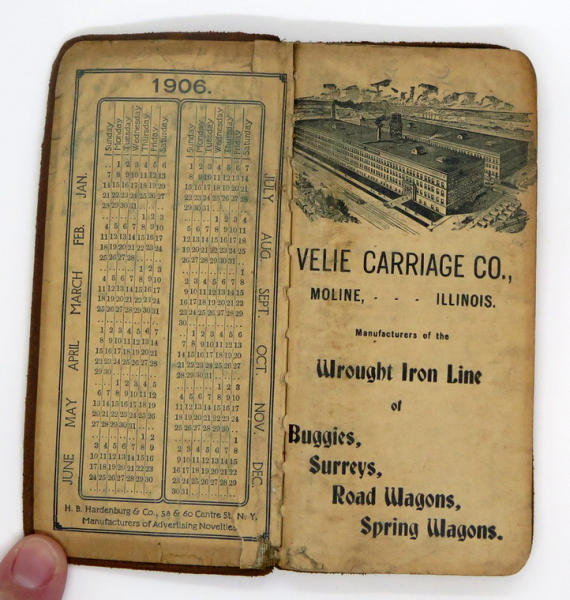 1906.
Sunday Monday Tuesday Wednesday Thursday Friday Saturday
JAN.
1 2 3 4 5 6
7 8 9 10 11 12 13
14 15 16 17 18 19 20
21 22 23 24 25 26 27
28 29 30 31
FEB.
1 2 3
4 5 6 7 8 9 10
11 12 13 14 15 16 17
18 19 20 21 22 23 24
25 26 27 28
MARCH
1 2 3
4 5 6 7 8 9 10
11 12 13 14 15 16 17
18 19 20 21 22 23 24
25 26 27 28 29 30 31
APRIL
1 2 3 4 5 6 7
8 9 10 11 12 13 14
15 16 17 18 19 20 21
22 23 24 25 26 27 28
29 30
MAY
1 2 3 4 5
6 7 8 9 10 11 12
13 14 15 16 17 18 19
20 21 22 23 24 25 26
27 28 29 30 31
JUNE
1 2
3 4 5 6 7 8 9
10 11 12 13 14 15 16
17 18 19 20 21 22 23
24 25 26 27 28 29 30
Sunday Monday Tuesday Wednesday Thursday Friday Saturday
JULY
1 2 3 4 5 6 7
8 9 10 11 12 13 14
15 16 17 18 19 20 21
22 23 24 25 26 27 28
29 30 31
AUG.
1 2 3 4
5 6 7 8 9 10 11
12 13 14 15 16 17 18
19 20 21 22 23 24 25
26 27 28 29 30 31
SEPT.
1
2 3 4 5 6 7 8
9 10 11 12 13 14 15
16 17 18 19 20 21 22
23 24 25 26 27 28 29
30
OCT.
1 2 3 4 5 6
7 8 9 10 11 12 13
14 15 16 17 18 19 20
21 22 23 24 25 26 27
28 29 30 31
NOV.
1 2 3
4 5 6 7 8 9 10
11 12 13 14 15 16 17
18 19 20 21 22 23 24
25 26 27 28 29 30
DEC.
1
2 3 4 5 6 7 8
9 10 11 12 13 14 15
16 17 18 19 20 21 22
23 24 25 26 27 28 29
30 31
H. B. Hardenburg & Co., 58 & 60 Centre St. N. Y.
Manufacturers of Advertising Novelties
VELIE CARRIAGE CO.,
MOLINE, - - - ILLINOIS.
Manufacturers of the
Wrought Iron Line
of
Buggies,
Surreys,
Road Wagons,
Spring Wagons.